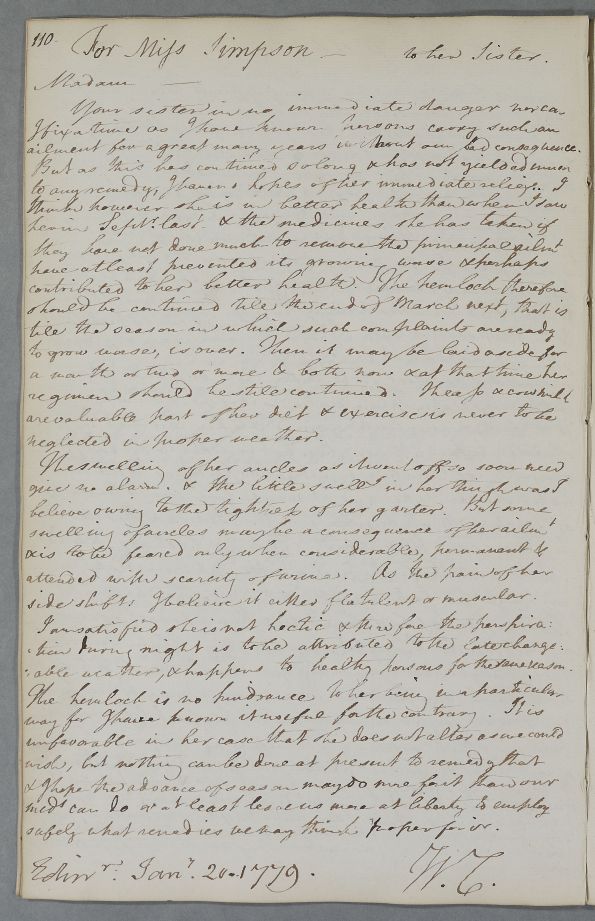 110.
For Miss Simpson — to her Sister.
Madam —
Your sister in no immediate danger nor ca-
I fix a time as I have known persons carry such an
ailment for a great many years without any bad consequence.
But as this has continued so long & has not yielded much
to any remedy, I have no hopes of her immediate relief. I
think however she is in better health than when I saw
her in Septr. last & the medicines she has taken if
they have not done much to remove the principal ailmt
have at least prevented its growing worse & perhaps
contributed to her better health. The hemloch therefore
should be continued till the end of March next, that is
till the season in which such complaints are ready
to grow worse, is over. Then it may be laid aside for
a month or two or more & both now & at that time her
regimen should be still continued. The ass & cow milk
are valuable part of her diet & exercise is never to be
neglected in proper weather.
The swelling of her ancles as it went off so soon need
give no alarm. & the little swellg in her thigh was I
believe owing to the tightness of her garter. But some
swelling of ancles may be a consequence of her ailmt
& is to be feared only when considerable, permanent &
attended with scarcity of urine. As the pain of her
side shifts I believe it either flatulent or muscular.
I am satisfied she is not hectic & therefore the perspira:
:tion during night is to be attributed to the late change:
:able weather, & happens to healthy persons for the same reason.
The hemloch is no hindrance to her being in a particular
way for I have known it useful for the contrary. It is
unfavorable in her case that she does not alter as we could
wish, but nothing can be done at present to remedy that
& I hope the advance of season may do more for it than our
meds can do or at least leave us more at liberty to employ
safely what remedies we may think proper for it.
Edinr. Janr. 20. 1779. W. C.